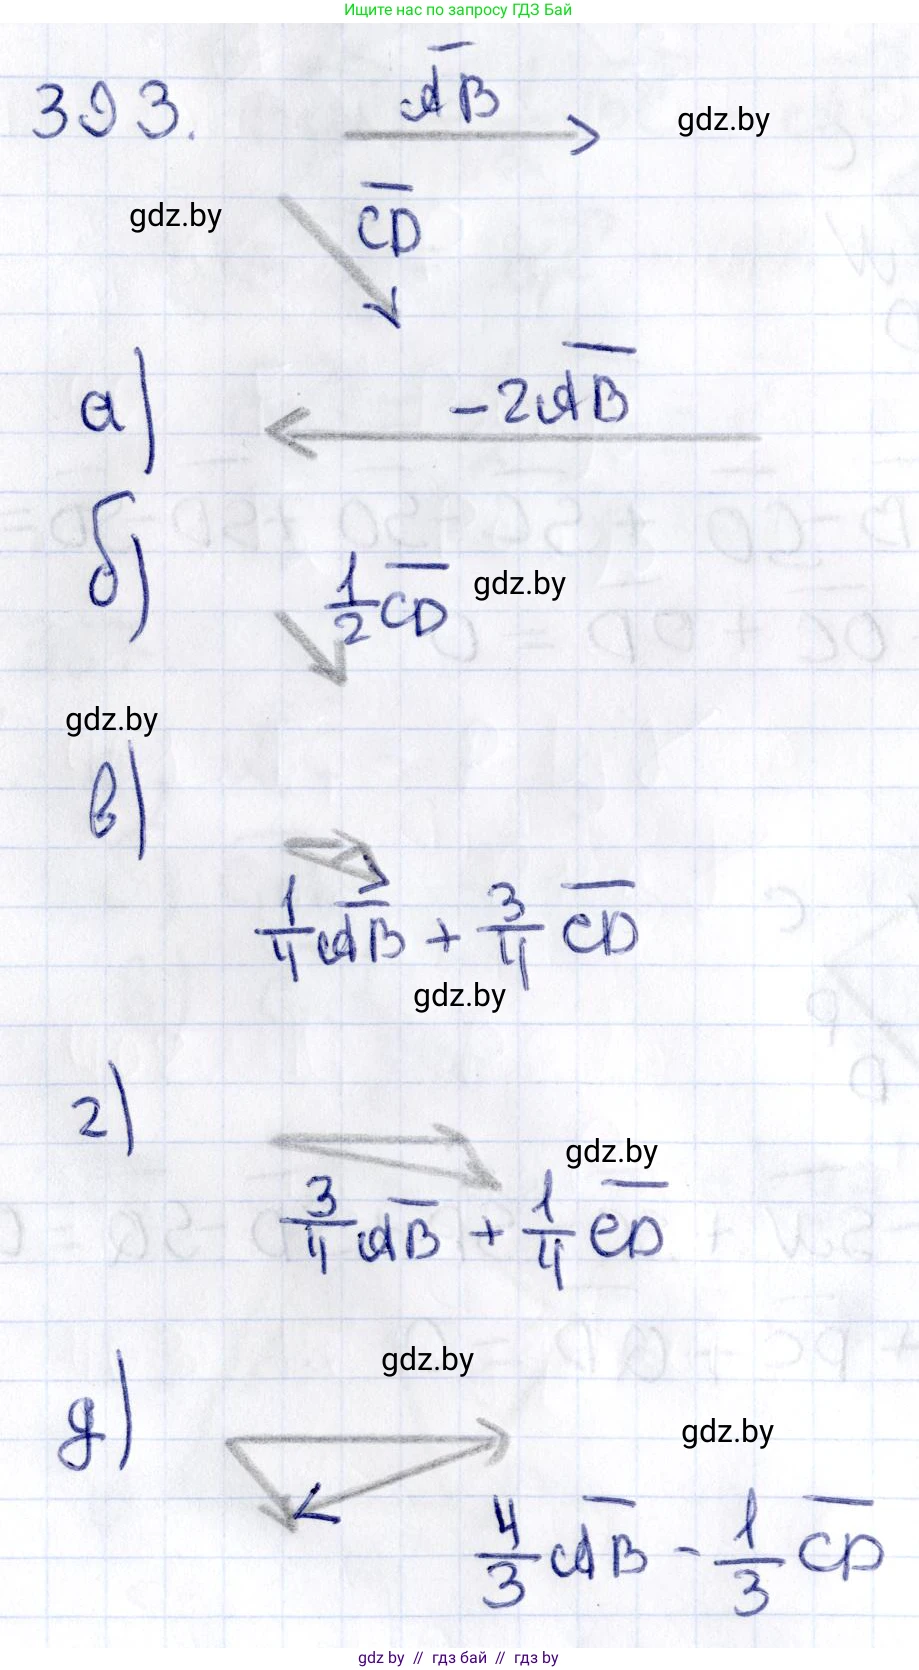 Ищите нас по запросу ГДЗ Бай
393.
AB
gdz.by
gdz.by
CD
а)
-2AB
б)
1/2 CD
gdz.by
gdz.by
в)
1/4 AB + 3/4 CD
gdz.by
г)
gdz.by
3/4 AB + 1/4 CD
gdz.by
д)
gdz.by
4/3 AB - 1/3 CD
gdz.by // гдз бай // гдз by